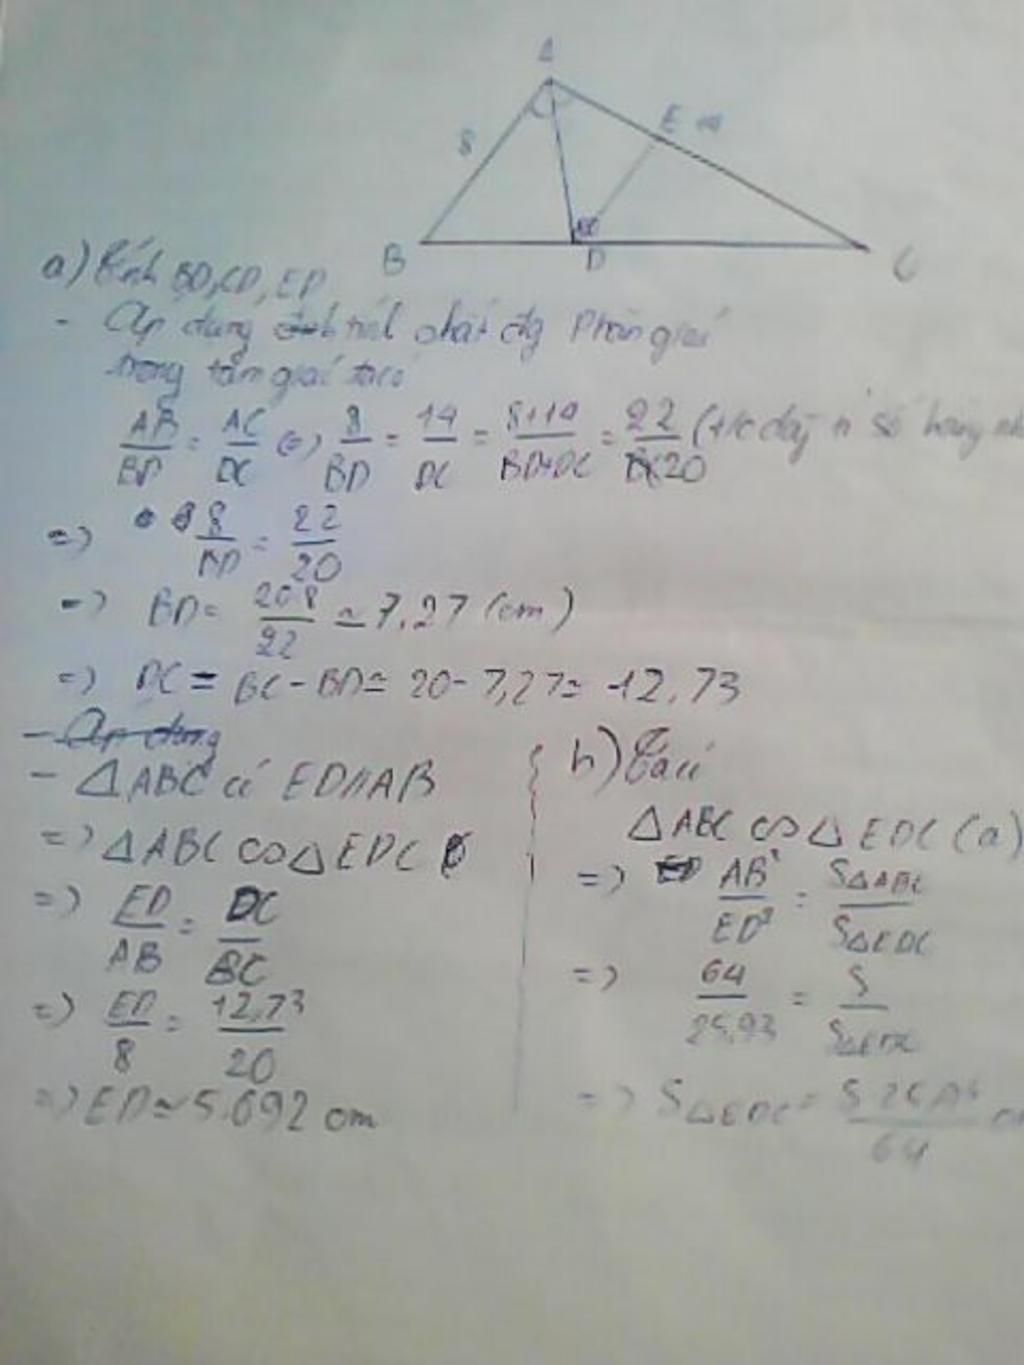 A
8
E
B
D
C
a) Tính BD, CD, ED
- Áp dụng tính chất đg Phân giác
trong tam giác ta có
AB/BD = AC/DC <=> 8/BD = 14/DC = 8+14/BD+DC = 22/20 (t/c dãy tỉ số bằng
=> 8/BD = 22/20
=> BD = 20.8/22 ≃ 7,27 (cm)
=> DC = BC - BD = 20 - 7,27 = 12,73
- Áp dụng
- △ABC có ED//AB
=> △ABC ∽ △EDC
=> ED/AB = DC/BC
=> ED/8 = 12,73/20
=> ED ≃ 5.092 cm
b) Ta có
△ABC ∽ △EDC (a)
=> AB²/ED² = S△ABC/S△EDC
=> 64/25,93 = S/S△EDC
=> S△EDC = 64